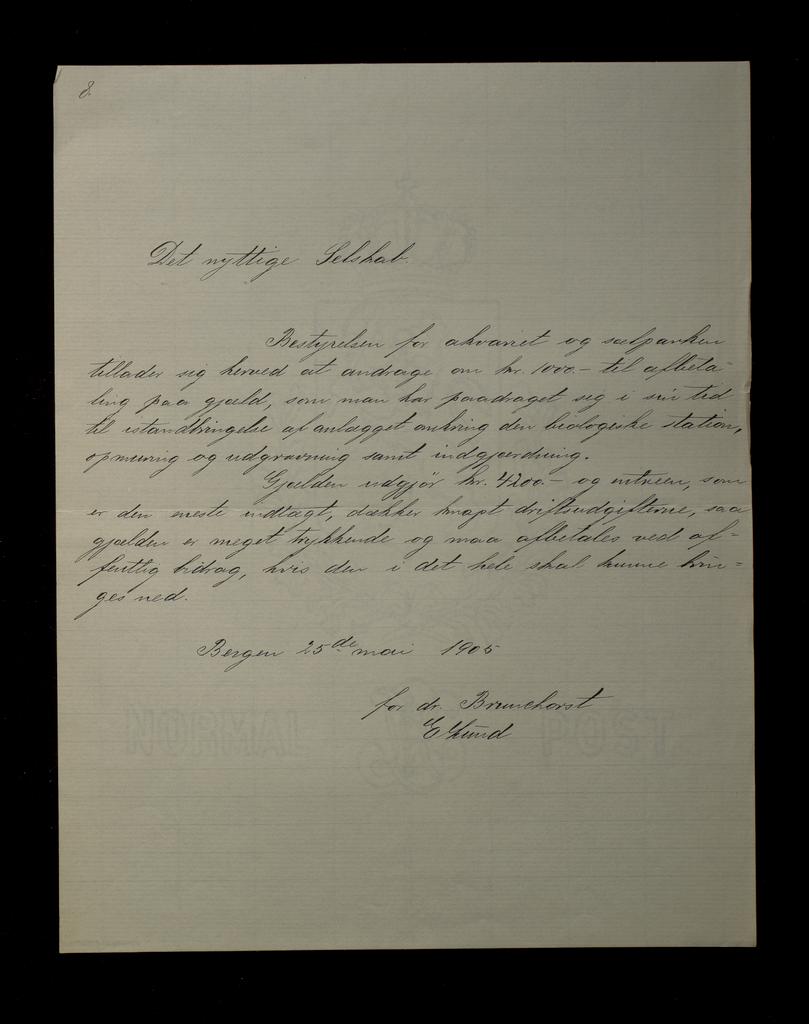 8.
Det nyttige Selskab.
Bestyrelsen for akvariet og sælparken
tillader sig herved at andrage om kr. 1000.- til afbeta-
ling paa gjæld, som man har paadraget seg i sin tid
til istandbringelse af anlægget omkring den biologiske station,
opmuring og udgravning samt indgjærdning.
Gjælden udgjør kr. 4200.- og entreen, som
er den eneste indtægt, dækker knapt driftsudgifterne, saa
gjælden er meget trykkende og maa afbetales ved of-
fentlig bidrag, hvis den i det hele skal kunne brin=
ges ned.
Bergen 25de mai 1905
for dr. Brunchorst
NORMAL POST